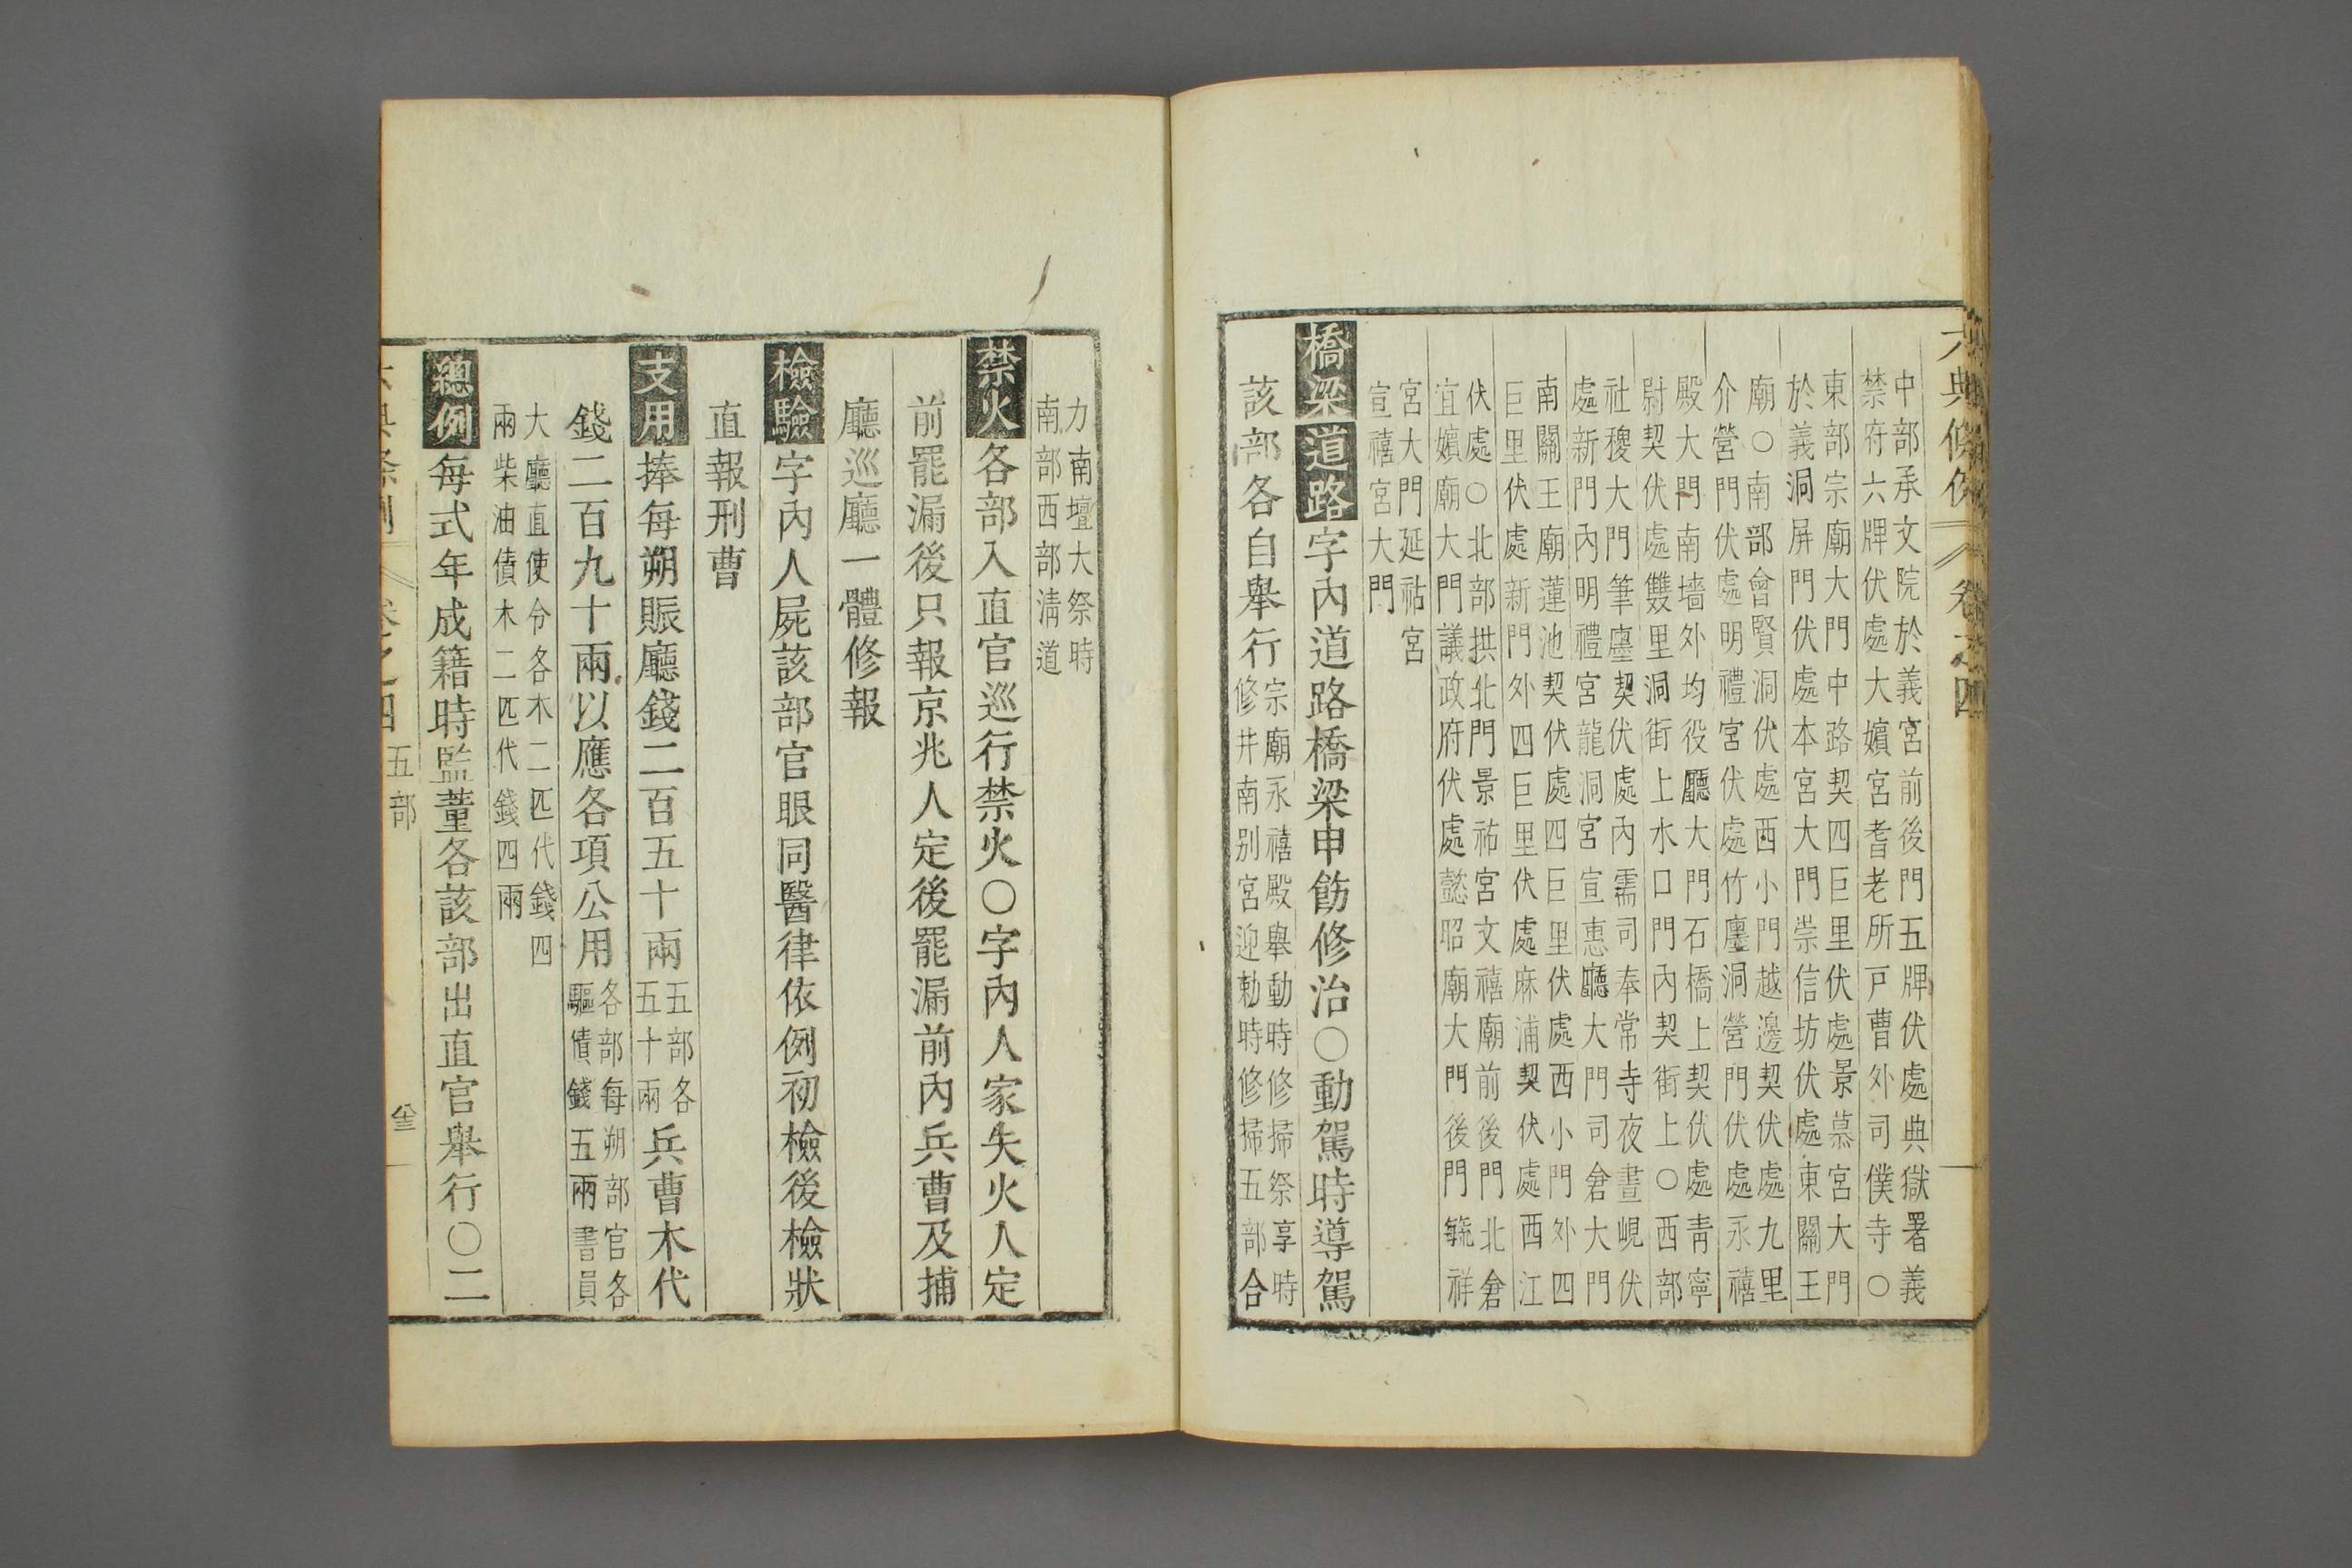 六典條例 卷之四
中部承文院於義宮前後門五牌伏處典獄署義
禁府六牌伏處大嬪宮耆老所戶曹外司僕寺○
東部宗廟大門中路契四巨里伏處景慕宮大門
於義洞屏門伏處本宮大門崇信坊伏處東關王
廟○南部會賢洞伏處西小門越邊契伏處九里
介營門伏處明禮宮伏處竹廛洞營門伏處永禧
殿大門南墻外均役廳大門石橋上契伏處靑寧
尉契伏處雙里洞街上水口門內契街上○西部
社稷大門筆廛契伏處內需司奉常寺夜晝峴伏
處新門內明禮宮龍洞宮宣惠廳大門司倉大門
南關王廟蓮池契伏處四巨里伏處西小門外四
巨里伏處新門外四巨里伏處麻浦契伏處西江
伏處○北部拱北門景祐宮文禧廟前後門北倉
宜嬪廟大門議政府伏處懿昭廟大門後門毓祥
宮大門延祜宮
宣禧宮大門
橋梁道路字內道路橋梁申飭修治○動駕時導駕
該部各自擧行
宗廟永禧殿擧動時修掃祭享時
修井南別宮迎勅時修掃五部合
力南壇大祭時
南部西部淸道
禁火各部入直官巡行禁火○字內人家失火人定
前罷漏後只報京兆人定後罷漏前內兵曹及捕
廳巡廳一體修報
檢驗字內人屍該部官眼同醫律依例初檢後檢狀
直報刑曹
支用捧每朔賑廳錢二百五十兩
五部各
五十兩
兵曹木代
錢二百九十兩以應各項公用
各部每朔部官各
驅債錢五兩書員
大廳直使令各木二匹代錢四
兩柴油債木二匹代錢四兩
總例每式年成籍時監董各該部出直官擧行○二
五部